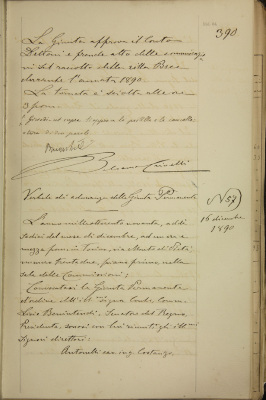 390
La Giunta approva il Conto
Dettori e prende atto della
sul raccolto della ditta
durante l'annata 1890.
La seduta è sciolta alle ore
3 pom.
Verbale di adunanza della Giunta Permanente
N 57
16 dicembre
1890
L'anno milleottocento novanta, addì
sedici del mese di dicembre, ad un'ora e
mezza pom. in Torino, via Monte di Pietà,
numero trentadue, piano primo, nella
sala delle Commissioni;
Convocatasi la Giunta Permanente
d'ordine dell' Ill. Signor Conte, Comm.
Livio Benintendi, Senatore del Regno
Presidente, sonosi con lui riuniti gli Ill.mi
Signori direttori:
Antonelli cav. ing. Costanzo